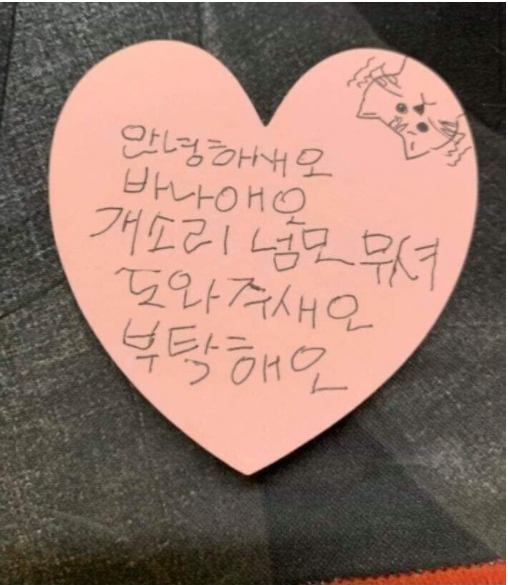 안녕하새오
바나애오
개소리 넘모 무셔
도와주새오
부탁해오